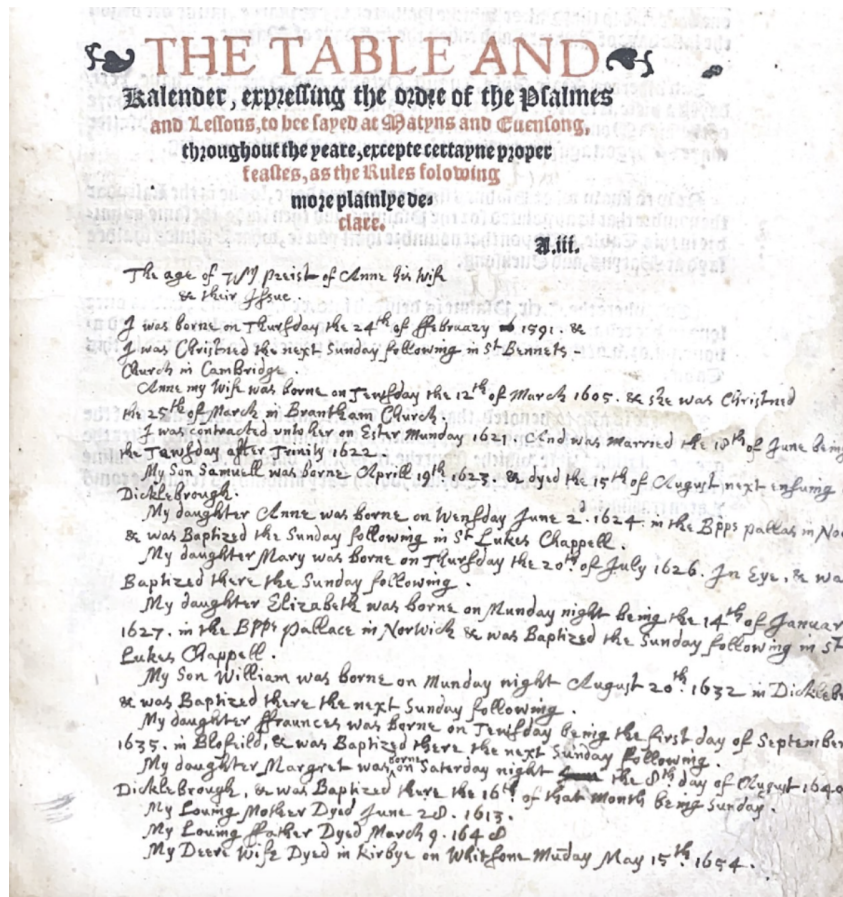 THE TABLE AND
Kalender, expressing the ordre of the Psalmes
and Lessons, to bee sayed at Matyns and Euensong,
throughout the yeare, excepte certayne proper
feastes, as the Rules folowing
more plainlye de-
clare.
A.iii.
The age of Preist of Anne his wife
& their Issue.
I was borne on Thursday the 24th of ffebruary 1591. &
I was Christned the next Sunday following in St Bennets
Church in Cambridge.
Anne my Wife was borne on Tewsday the 12th of March 1605. & she was Christned
the 25th of March in Brantham Church.
I was contracted unto her on Ester Munday 1621. And was married the 18th of June being
the Tewsday after Trinity 1622.
My Son Samuell was borne Aprill 19th. 1623. & dyed the 15th of August next ensuing
Dicklebrough.
My daughter Anne was borne on Wensday June 2d. 1624. in the Bpps pallas in No
& was Baptized the Sunday following in St Lukes Chappell.
My daughter Mary was borne on Thursday the 20th. of July 1626. In Eye, & wa
Baptized there the Sunday following.
My daughter Elizabeth was borne on Munday night being the 14th of Januar
1627. in the Bpps pallace in Norwich & was Baptized the Sunday following in St
Lukes Chappell.
My Son William was borne on Munday night August 20th. 1632 in Dickleb
& was Baptized there the next Sunday following.
My daughter ffraunces was borne on Tewsday being the first day of September
1635. in Blofeild, & was Baptized there the next Sunday following.
My daughter Margret was borne on Saterday night the 8th day of August 1640
Dicklebrough, & was Baptized there the 16th of that Month being Sunday.
My Loving Mother Dyed June 28. 1613.
My Loving ffather Dyed March 9. 1648
My Deere Wife Dyed in Kirbye on Whitsone Muday May 15th. 1654.